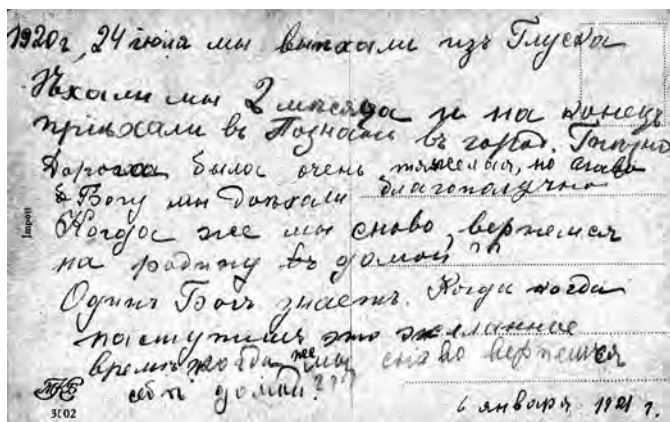 1920 г, 24 июля мы выѣхали изъ Глуска
Ѣхали мы 2 мѣсяца и на конецъ
приѣхали въ Познань въ город.
Дорога была очень тяжелая, но слава
Богу мы доѣхали благополучно
Когда же мы снова, вернемся
на родину въ домой??
Одинъ Богъ знаетъ. Когда когда
наступитъ это желанное
время когда же мы снаво вернемся
себѣ домой???
6 января 1921 г.
3002